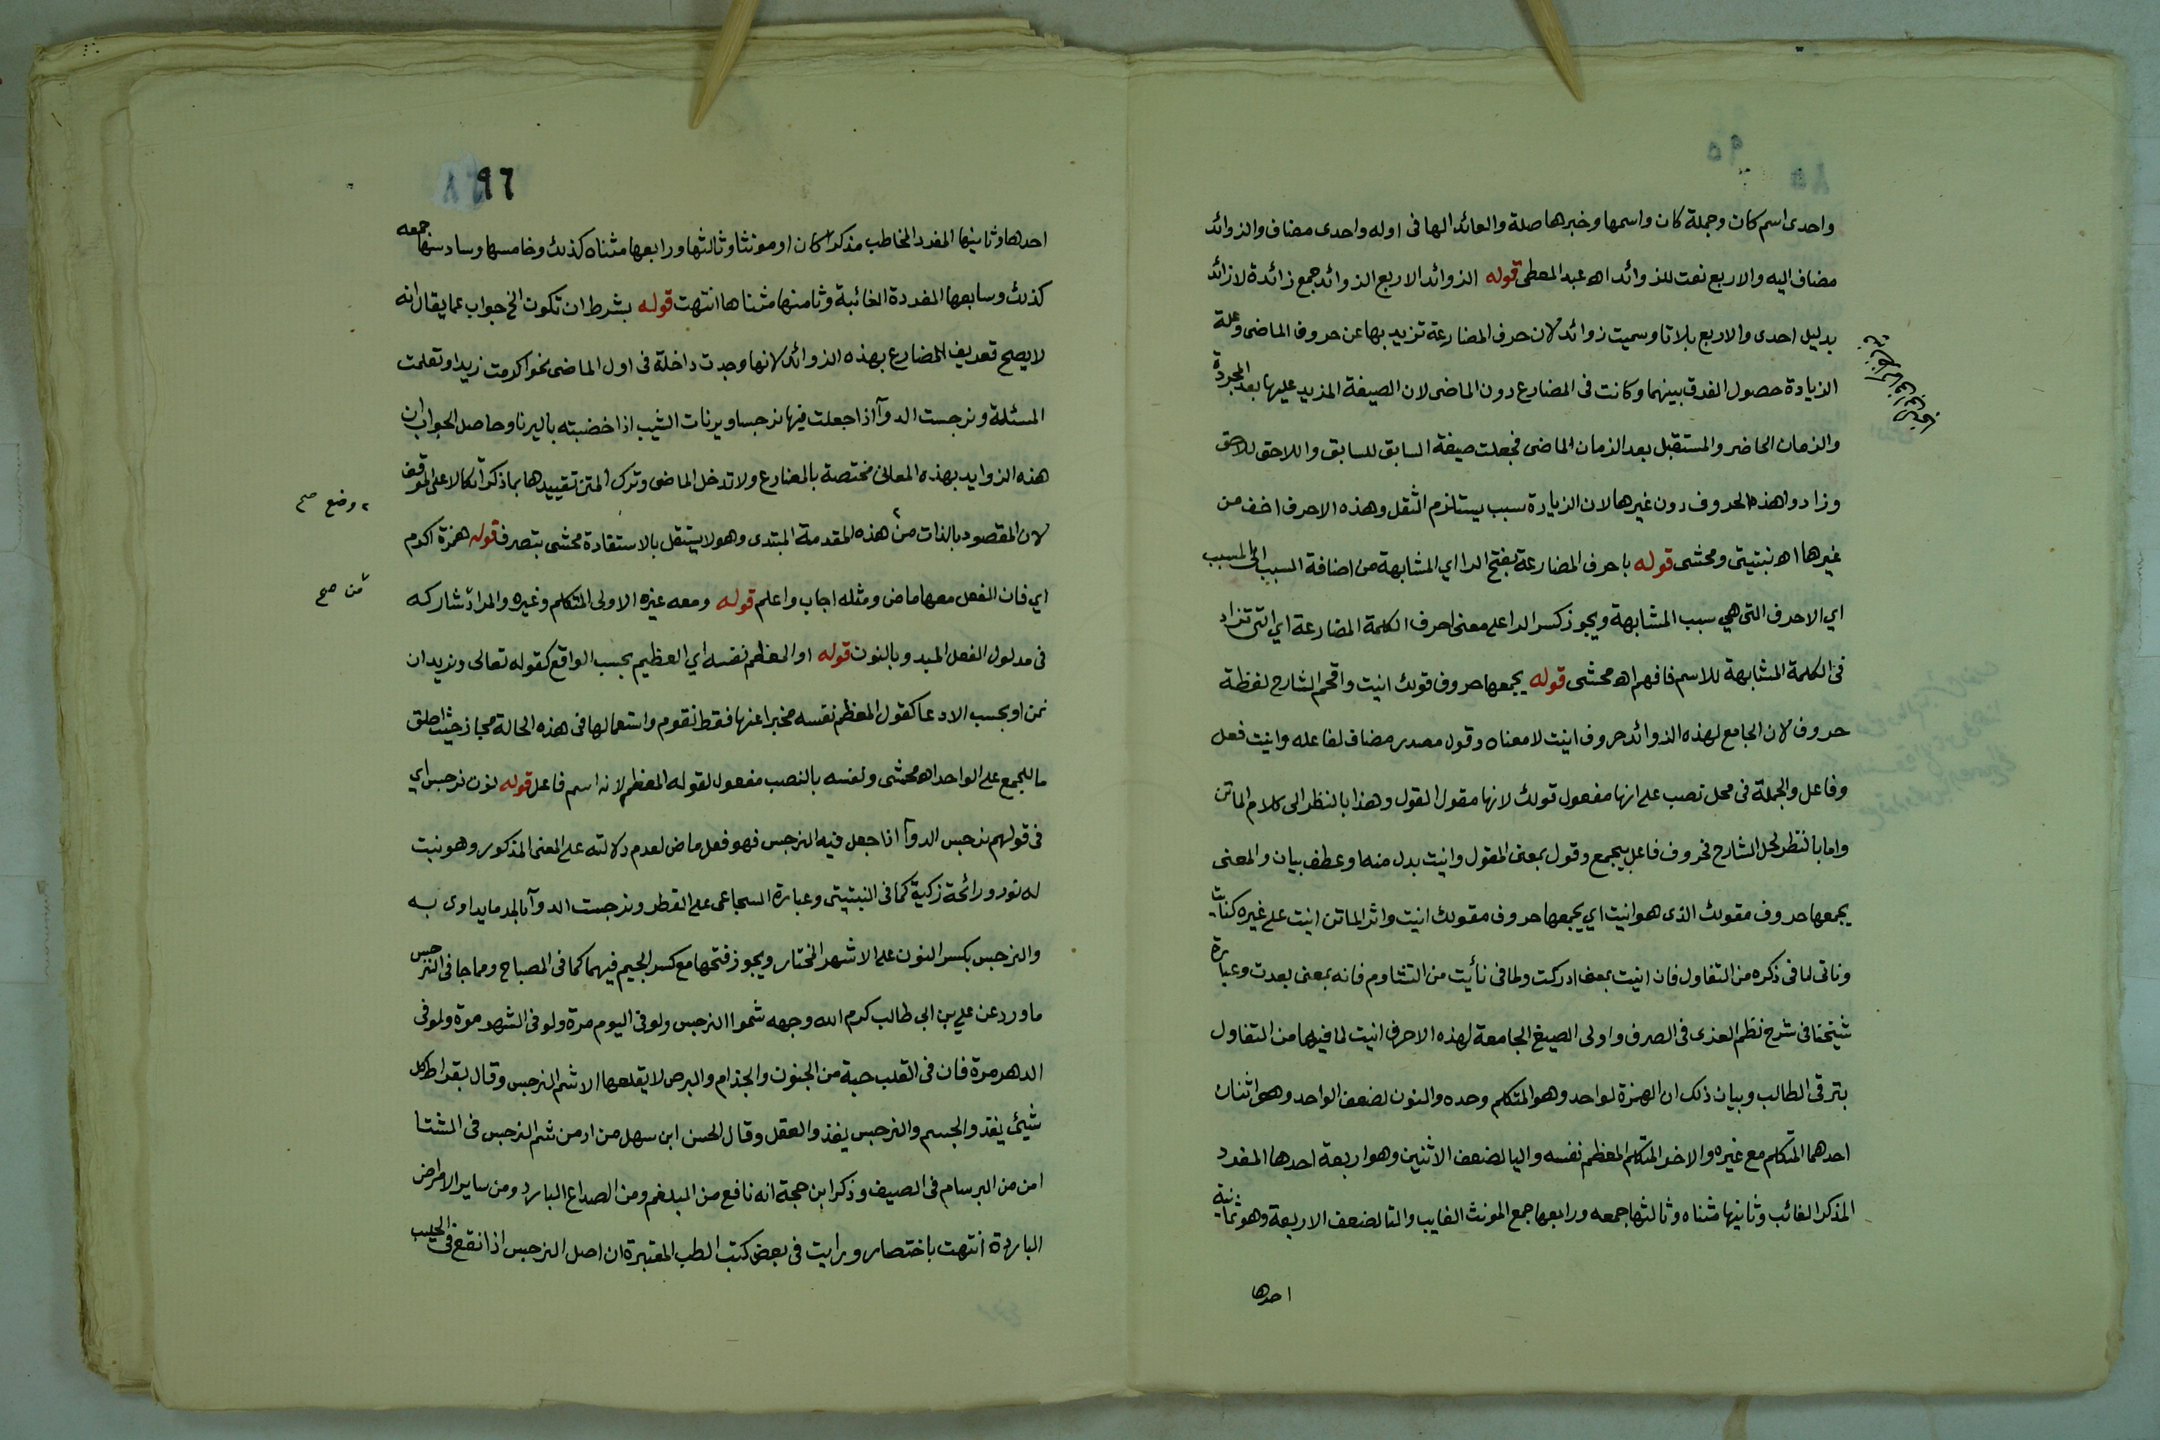 ٩٥
واحدى اسم كان وجملة كان واسمها وخبرها صلة والعائد الها فى اوله واحدى مضاف والزوائد
مضاف اليه والاربع نعت للزوائد اهـ عبد المعطى قوله الزوائد الاربع الزوائد جمع زائدة لا زائد
بدليل احدى والاربع بلا تا وسميت زوائد لان حرف المضارعة تزيد بها عن حروف الماضى وعلة
الزيادة حصول الفرق بينهما وكانت فى المضارع دون الماضى لان الصيغة المزيد عليها بعد المجردة
والزمان الحاضر والمستقبل بعد الزمان الماضى فجعلت صيغة السابق للسابق واللاحق للاحق
وزادوا هذه الحروف دون غيرها لان الزيادة سبب يستلزم الثقل وهذه الاحرف اخف من
غيرها اهـ نبتيتى ومحشى قوله باحرف المضارعة بفتح الرا اي المشابهة من اضافة السبب الى المسبب
اي الاحرف التى هي سبب المشابهة ويجوز كسر الرا على معنى احرف الكلمة المضارعة اي التى تزاد
فى الكلمة المشابهة للاسم فافهم اهـ محشى قوله يجمعها حروف قولك انيت واقحم الشارح لفظة
حروف لان الجامع لهذه الزوائد حروف انيت لا معناه وقول مصدر مضاف لفاعله وانيت فعل
وفاعل والجملة فى محل نصب على انها مفعول قولك لانها مقول القول وهذا بالنظر الى كلام الماتن
واما بالنظر لحل الشارح فحروف فاعل بيجمع وقول بمعنى المقول وانيت بدل منه او عطف بيان والمعنى
يجمعها حروف مقولك الذى هو انيت اي يجمعها حروف مقولك انيت واثر الماتن انيت على غيره كنايت
وناتى لما فى ذكره من التفاول فان انيت بمعنى ادركت ولما فى نأيت من التشاوم فانه بمعنى بعدت وعبارة
شيخنا فى شرح نظم العزى فى الصرف واولى الصيغ الجامعة لهذه الاحرف انيت لما فيها من التفاول
بترقى الطالب وبيان ذلك ان الهمزة لواحد وهو المتكلم وحده والنون لضعف الواحد وهو اثنان
احدهما المتكلم مع غيره والاخر المتكلم المعظم نفسه واليا لضعف الاثنين وهو اربعة احدها المفرد
المذكر الغائب وثانيها مثناه وثالثها جمعه ورابعها جمع المونث الغايب والتا لضعف الاربعة وهو ثمانية
احدها
٩٦
احدها وثانيها المفرد المخاطب مذكرا كان او مونثا وثالثها ورابعها مثناه كذلك وخامسها وسادسها جمعه
كذلك وسابعها المفردة الغائبة وثامنها مثناها انتهت قوله بشرط ان تكون الخ جواب عما يقال انه
لا يصح تعريف المضارع بهذه الزوائد لانها وجدت داخلة فى اول الماضى نحو اكرمت زيدا وتعلمت
المسئلة ونرجست الدوآ اذا جعلت فيها نرجسا ويرنات الشيب اذا خضبته باليرنا وحاصل الجواب ان
هذه الزوايد بهذه المعانى مختصة بالمضارع ولا تدخل الماضى وترك المتن تقييدها بما ذكر اتكالا على الموقف
لان المقصود بالذات من هذه المقدمة المبتدى وهو لا يستقل بالاستفادة محشى بتصرف قوله همزة اكرم
اي فان الفعل معها ماض ومثله اجاب واعلم قوله ومعه غيره الاولى المتكلم وغيره والمراد تشاركه
فى مدلول الفعل المبدو بالنون قوله او المعظم نفسه اي العظيم بحسب الواقع كقوله تعالى ونريد ان
نمن او بحسب الادعا كقول المعظم نفسه مخبرا عنها فقط نقوم واستعمالها فى هذه الحالة مجاز حيث اطلق
ما للجمع على الواحد اهـ محشى ونفسه بالنصب مفعول لقوله المعظم لانه اسم فاعل قوله نون نرجس اي
فى قولهم نرجس الدوآ اذا جعل فيه النرجس فهو فعل ماض لعدم دلالته على المعنى المذكور وهو نبت
له نور ورائحة زكية كما فى النبتيتى وعبارة السجاعى على القطر ونرجست الدوآ بالمد ما يداوى به
والنرجس بكسر النون على الاشهر المختار ويجوز فتحها مع كسر الجيم فيهما كما فى المصباح ومما جا فى النرجس
ما ورد عن علي بن ابى طالب كرم الله وجهه شموا النرجس ولو فى اليوم مرة ولو فى الشهر مرة ولو فى
الدهر مرة فان فى القلب حبة من الجنون والجذام والبرص لا يقلعها الا شم النرجس وقال بقراط كل
شيئ يغذو الجسم والنرجس يغذو العقل وقال الحسن ابن سهل من ادمن شم النرجس فى الشتا
امن من البرسام فى الصيف وذكر ابن حجة انه نافع من البلغم ومن الصداع البارد ومن ساير الامراض
الباردة انتهت باختصار ورايت فى بعض كتب الطب المعتبرة ان اصل النرجس اذا نقع فى الحليب
وضع صح
من صح